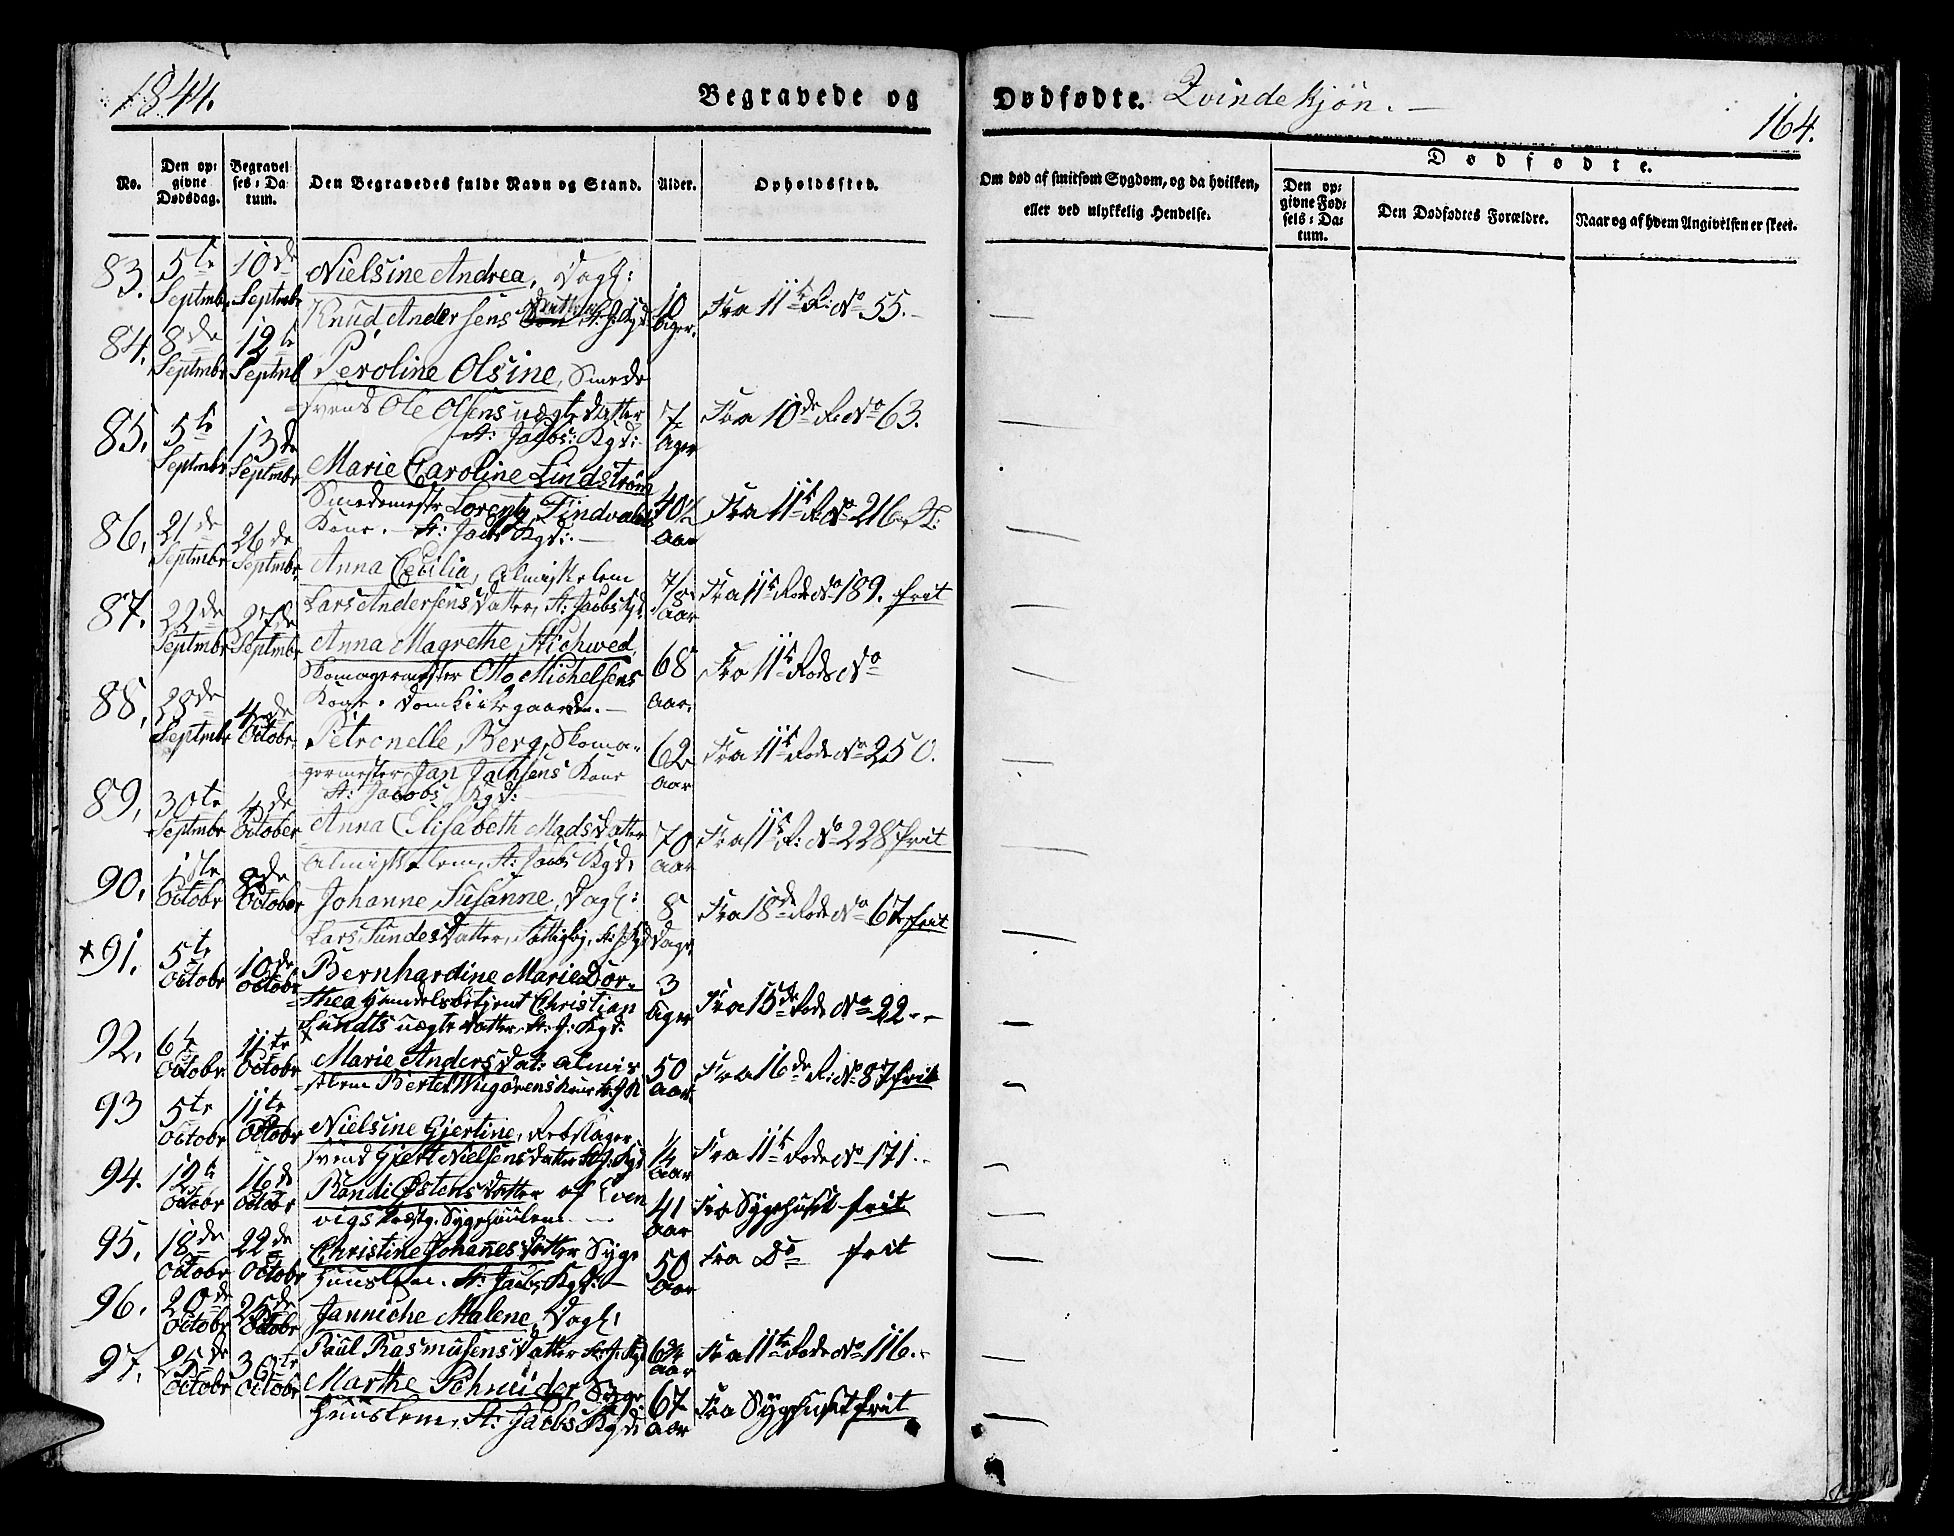 1844.
Begravede og
Dødfødte. Qvindekjøn. —
164.
No.
Den op:
givne
Dødsdag.
Begravel
ses: Da
tum.
Den Begravedes fulde Navn og Stand.
Alder.
Opholdssted.
Om død af smitsom Sygdom, og da hvilken,
eller ved ulykkelig Hendelse.
Dødfødte.
Den op:
givne Fød:
sels: Da:
tum.
Den Dødfødtes Forældre.
Naar og af hvem Angivelsen er skeet.
83. 5te Septmbr 10de Septmbr Nielsine Andrea, Dagl:
Knud Andersens Datter St: J: Kgd 10 Uger. Fra 11te R: No 55.
84. 8de Septmbr 12te Septmb Peroline Olsine, Smede
svend Ole Olsens uægte Datter 7 Uger Fra 10de Rode No 63.
St: Jacobs: Kgd:
85. 5te Septmbr 13de Septmbr Marie Caroline Lindstrøm
Smedemestr Lorentz Tindvalds 40½ Aar Fra 11te R No 216. St:
Kone. St: Jacobs Kgd:
86. 21de Septmbr 26de Septmbr Anna Cecilia, Almisselem
Lars Andersens Datter, St: Jacobs Kgd: 7/8 Aar Fra 11te Rode No 189. frit
87. 22de Septmbr 27de Septmbr Anna Magrethe Stichwed,
Skomagermester Otto Michelsens 68 Aar. Fra 11te Rode No
Kone. Domkirkegaarden.
88. 28de Septmbr 4de Octobr Petronelle Berg, Skoma-
germester Jan Jansens Kone 62 Aar Fra 11te Rode No 250.
St: Jacobs Kgd:
89. 30te Septmbr 4de October Anna Elisabeth Madsdatter
Almisselem, St: Jacobs Kgd: 70 Aar Fra 11te R: No 228 frit
90. 1ste Octobr 8de October Johanne Susanne, Dagl:
Lars Sundes Datter, Fattigbg, St: J: Kgd 8 Dage. Fra 18de Rode No 67 frit
x 91. 5te Octobr 10de Octobr Bernhardine Marie Dor-
thea Handelsbetjent Christian 3 Uger Fra 15de Rode No 22.
Sundts uægte Datter, St: J: Kgd:
92. 6te Octobr 11te Octobr Marie Andersdat: Almis
selem Bertel Kone St: J: K 50 Aar Fra 16de R: No 87 frit
93 5te Octobr 11te Octobr Nielsine Gjertine, Rebslager
svend Gjert Nielsens Datter St: J: Kgd 14 Aar Fra 11te Rode No 171.
94. 12te Octobr 16de Octobr Randi Østensdatter af Even
vigs Præstg. Sygehuuslem 41 Aar Fra Sygehuset frit
95. 18de Octobr 22de Octobr Christine Johannesdatter Syge
Huuslem. St: Jacobs Kgd: 50 Aar Fra Do frit
96. 20de Octobr 25de Octobr Janniche Malene, Dagl:
Paul Rasmusens Datter St: J: Kgd 6¾ Aar Fra 11te Rode No 116.
97. 25de Octobr 30te Octobr Marthe Schneider, Syge
Huuslem, St: Jacobs Kgd: 67 Aar Fra Sygehuset frit